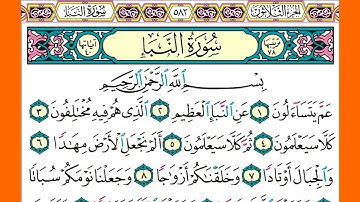 الجزء الثلاثون ٥٨٢ سورة النبأ
ترتيبها ٧٨ سُورَةُ النَّبَإِ آياتها ٤٠
بِسْمِ اللَّهِ الرَّحْمَٰنِ الرَّحِيمِ
عَمَّ يَتَسَاءَلُونَ ١ عَنِ النَّبَإِ الْعَظِيمِ ٢ الَّذِي هُمْ فِيهِ مُخْتَلِفُونَ ٣
كَلَّا سَيَعْلَمُونَ ٤ ثُمَّ كَلَّا سَيَعْلَمُونَ ٥ أَلَمْ نَجْعَلِ الْأَرْضَ مِهَٰدًا ٦
وَالْجِبَالَ أَوْتَادًا ٧ وَخَلَقْنَٰكُمْ أَزْوَٰجًا ٨ وَجَعَلْنَا نَوْمَكُمْ سُبَاتًا